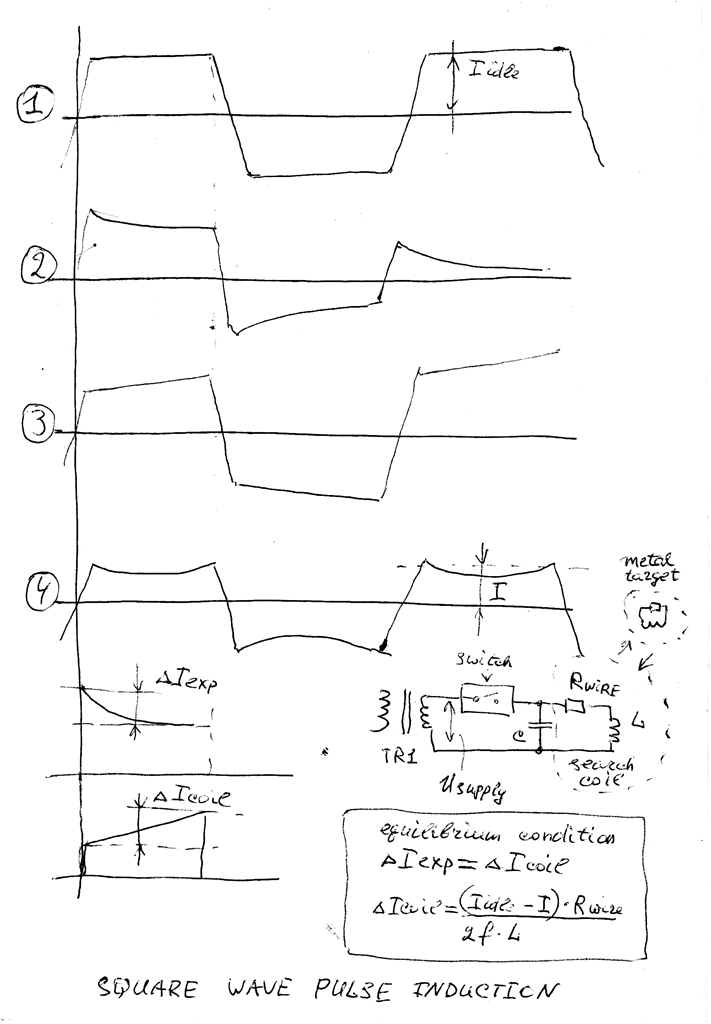 1
I idle
2
3
4
I
metal
target
switch
RWIRE
L
C
TR1
search
coil
U supply
ΔI exp
ΔI coil
equilibrium condition
ΔI exp = ΔI coil
ΔI coil = (I idle - I) · R wire
2f · L
SQUARE WAVE PULSE INDUCTION